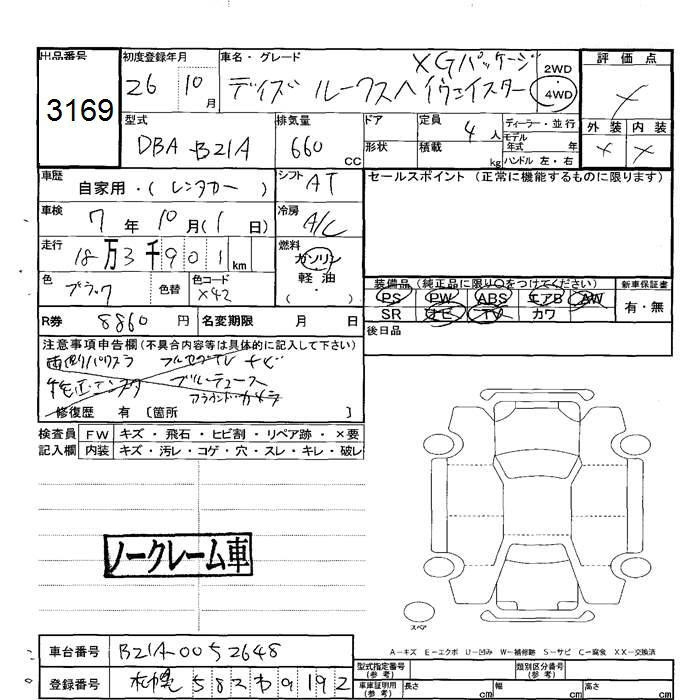 出品番号
3169
初度登録年月
26 10月
車名・グレード
XGパッケージ
デイズ ルークスハイウェイスター
2WD
4WD
評価点
×
外装 内装
× ×
型式
DBA-B21A
排気量
660 CC
ドア
形状
定員 4人
積載 kg
ディーラー・並行
モデル年式 年
ハンドル 左・右
車歴
自家用・(レンタカー)
シフト AT
セールスポイント(正常に機能するものに限ります)
車検
7年10月(1日)
冷房
A/C
走行
18万3千901km
燃料
ガソリン
軽油
(・・)
色
ブラック
色替
色コード
X42
装備品(純正品に限り○をつけてください)
PS PW ABS エアB AW
SR ナビ TV カワ
新車保証書
有・無
後日品
R券 8860円
名変期限 月 日
注意事項申告欄(不具合内容等は具体的に記入して下さい)
両側パワスラ フルセグTV ナビ
ブルートゥース
アラウンドカメラ
修復歴 有〔箇所 〕
検査員 FW キズ・飛石・ヒビ割・リペア跡・×要
記入欄 内装 キズ・汚レ・コゲ・穴・スレ・キレ・破レ
ノークレーム車
スペア
A-キズ E-エクボ U-凹み W-補修跡 S-サビ C-腐食 XX-交換済
車台番号 B21A-0052648
登録番号 札幌 582 わ 9192
型式指定番号(参考)
類別区分番号(参考)
車庫証明用(参考) 長さ cm 幅 cm 高さ cm